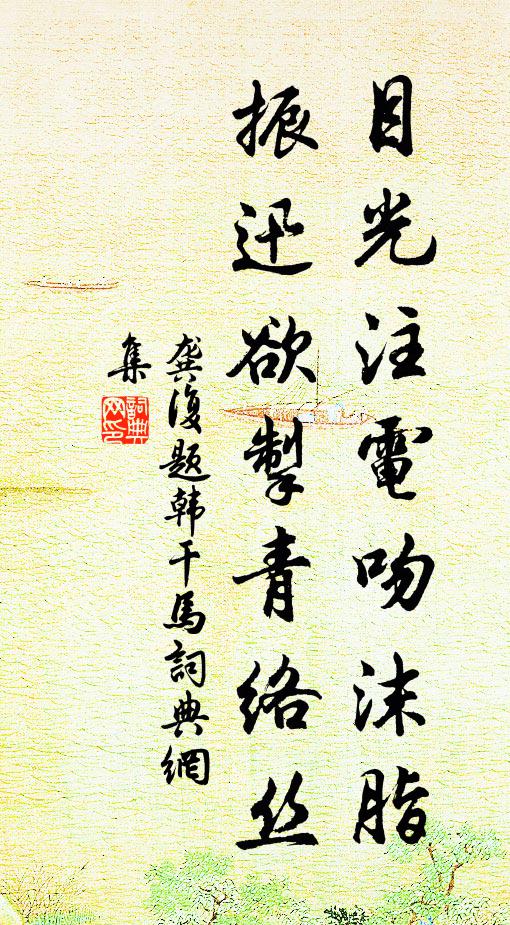 目光注電吻沫脂
振迅欲掣青絡丝
龚復题韩干馬詞典網
集
詞典
网印